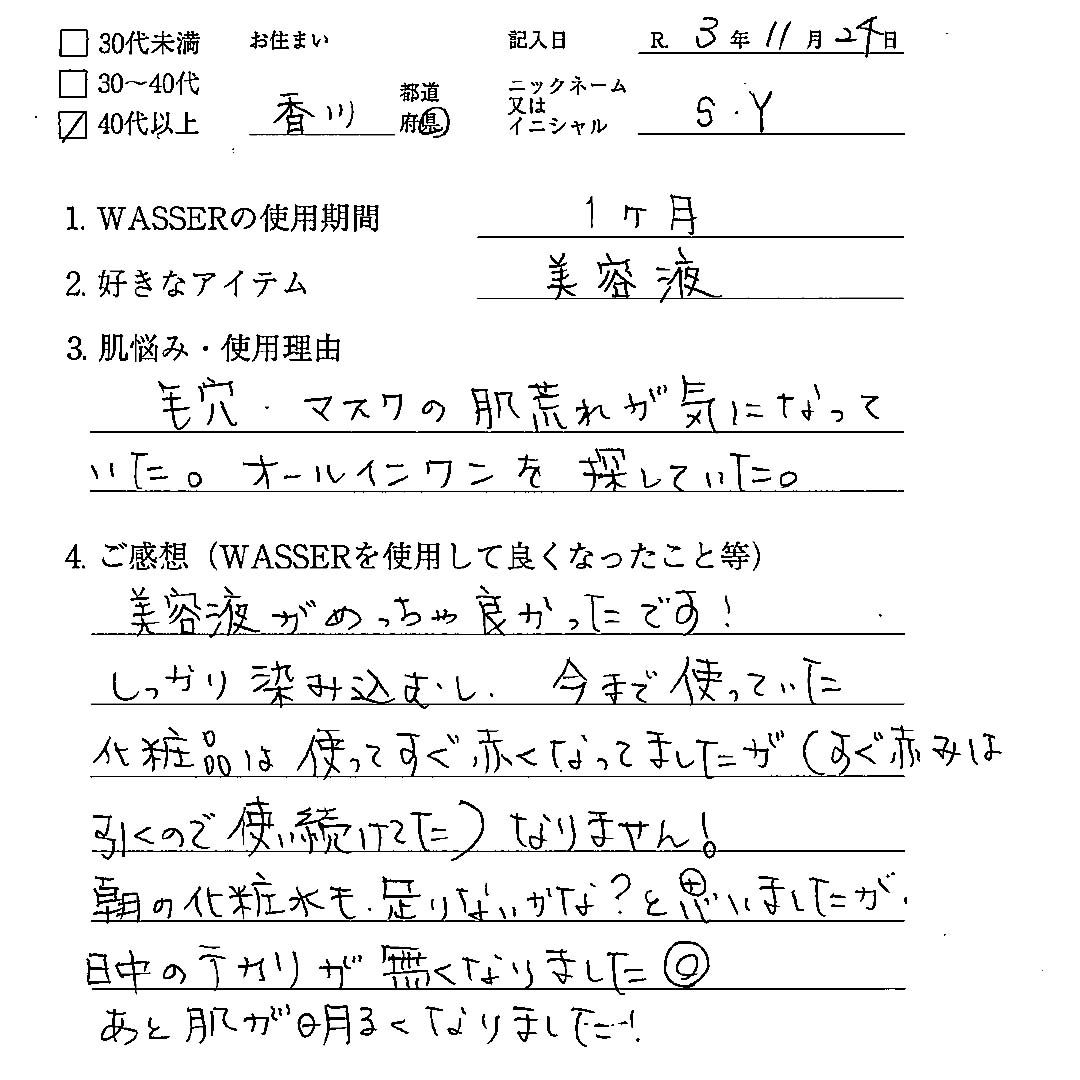 30代未満 お住まい 記入日 R. 3 年 11 月 24 日
30〜40代 香川 都道府県 ニックネーム又はイニシャル S.Y
40代以上
1. WASSERの使用期間 1ヶ月
2. 好きなアイテム 美容液
3. 肌悩み・使用理由
毛穴・マスクの肌荒れが気になって
いた。オールインワンを探していた。
4. ご感想（WASSERを使用して良くなったこと等）
美容液がめっちゃ良かったです!
しっかり染み込むし、今まで使っていた
化粧品は使ってすぐ赤くなってましたが(すぐ赤みは
引くので使い続けてた)なりません!
朝の化粧水も、足りないかな?と思いましたが、
日中のテカリが無くなりました◎
あと肌が明るくなりました!